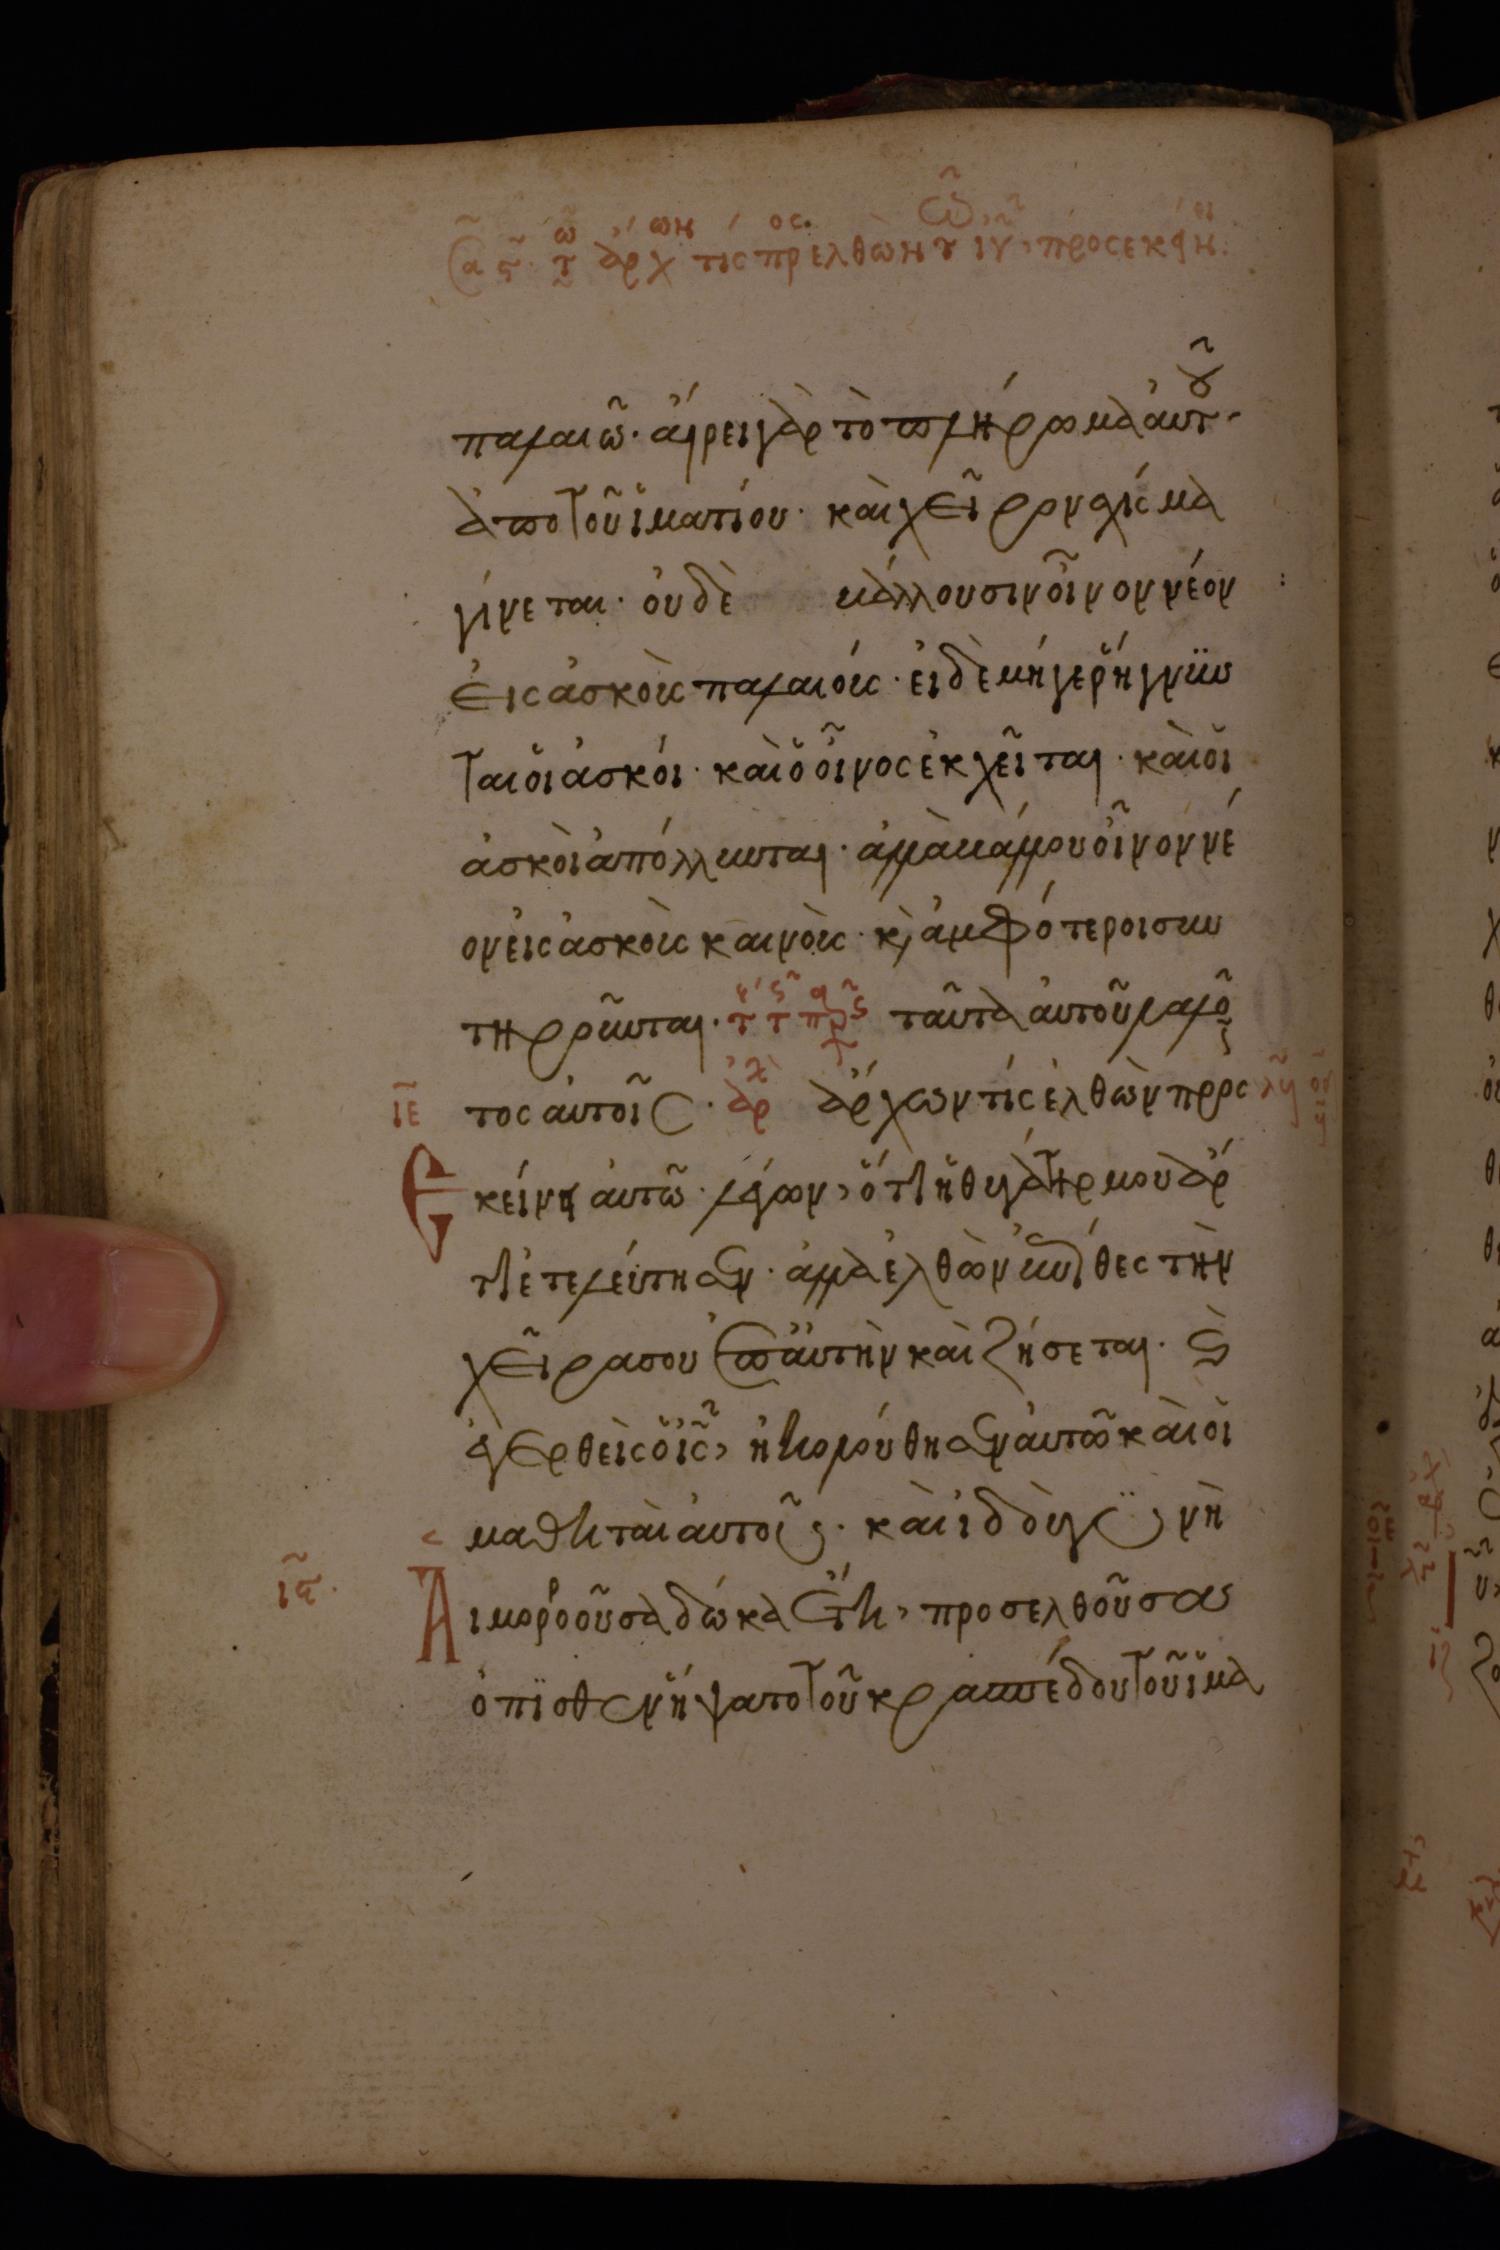 παλαιῶ· ἄιρει γὰρ τὸ πλήρωμα ἀυτοῦ
ἀπὸ τοῦ ἱματίου· καὶ χεῖρον σχίσμα
γίνεται· ὀυδὲ βάλλουσιν οἶνον νέον
ἐις ἀσκοὺς παλαιούς· ἐι δὲ μήγε ῥήγνυν
ται ὁι ἀσκόι· καὶ ὁ οἶνος ἐκχεῖται· καὶ ὁι
ἀσκοὶ ἀπόλλυνται· ἀλλὰ βάλλουσιν οἶνον νέ
ον ἐις ἀσκοὺς καινοὺς· κ ἀμφότεροι συν
τηροῦνται· ταῦτα ἀυτοῦ λαλοῦν
ιε τος ἀυτοῖς· ἀρχ ἄρχων τίς ἐλθὼν προσ
Εκύνει ἀυτῶ· λέγων, ὅτι ἡ θυγάτηρ μου ἄρ
τι ἐτελεύτησεν· ἀλλὰ ἐλθὼν ἐπίθες τὴν
χεῖρα σου ἐπ ἀυτὴν καὶ ζήσεται· κ
ἐγερθεὶς ὁ ις, ἠκολούθησεν ἀυτῶ καὶ ὁι
μαθηταὶ ἀυτοῦ· καὶ ἰδοὺ γυνὴ
ις Αἱμορροοῦσα δώδεκα ἔτη, προσελθοῦσα
ὄπισθεν ἥψατο τοῦ κρασπέδου τοῦ ἱμα